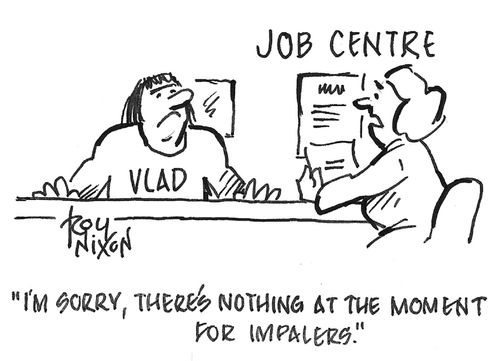 JOB CENTRE
VLAD
ROY
NIXON
"I'M SORRY, THERE'S NOTHING AT THE MOMENT
FOR IMPALERS."